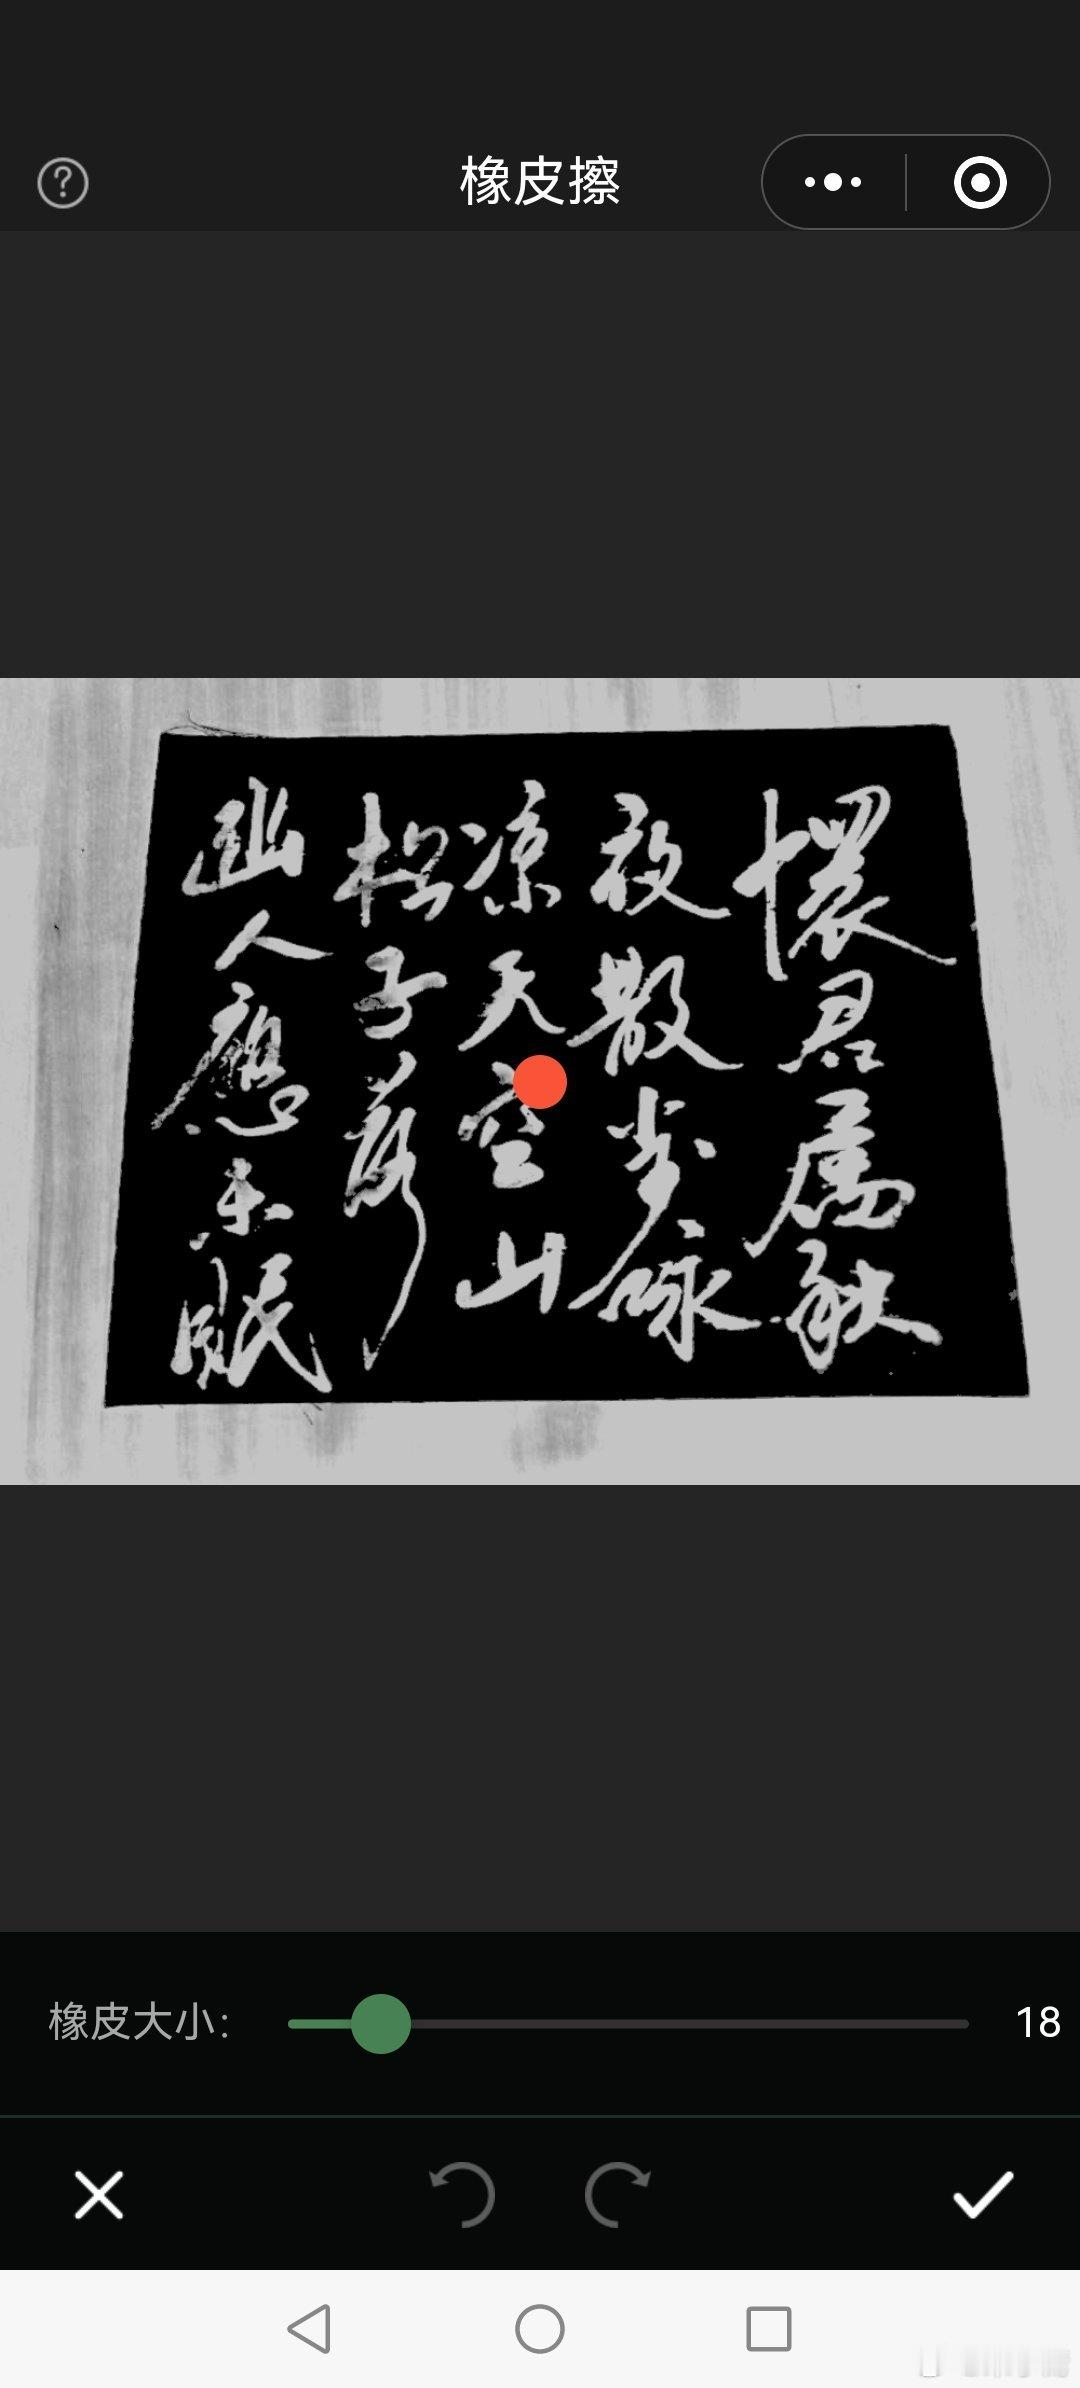 橡皮擦
懷君屬秋
夜散步咏
凉天空山
松子落
幽人應未眠
橡皮大小：
18